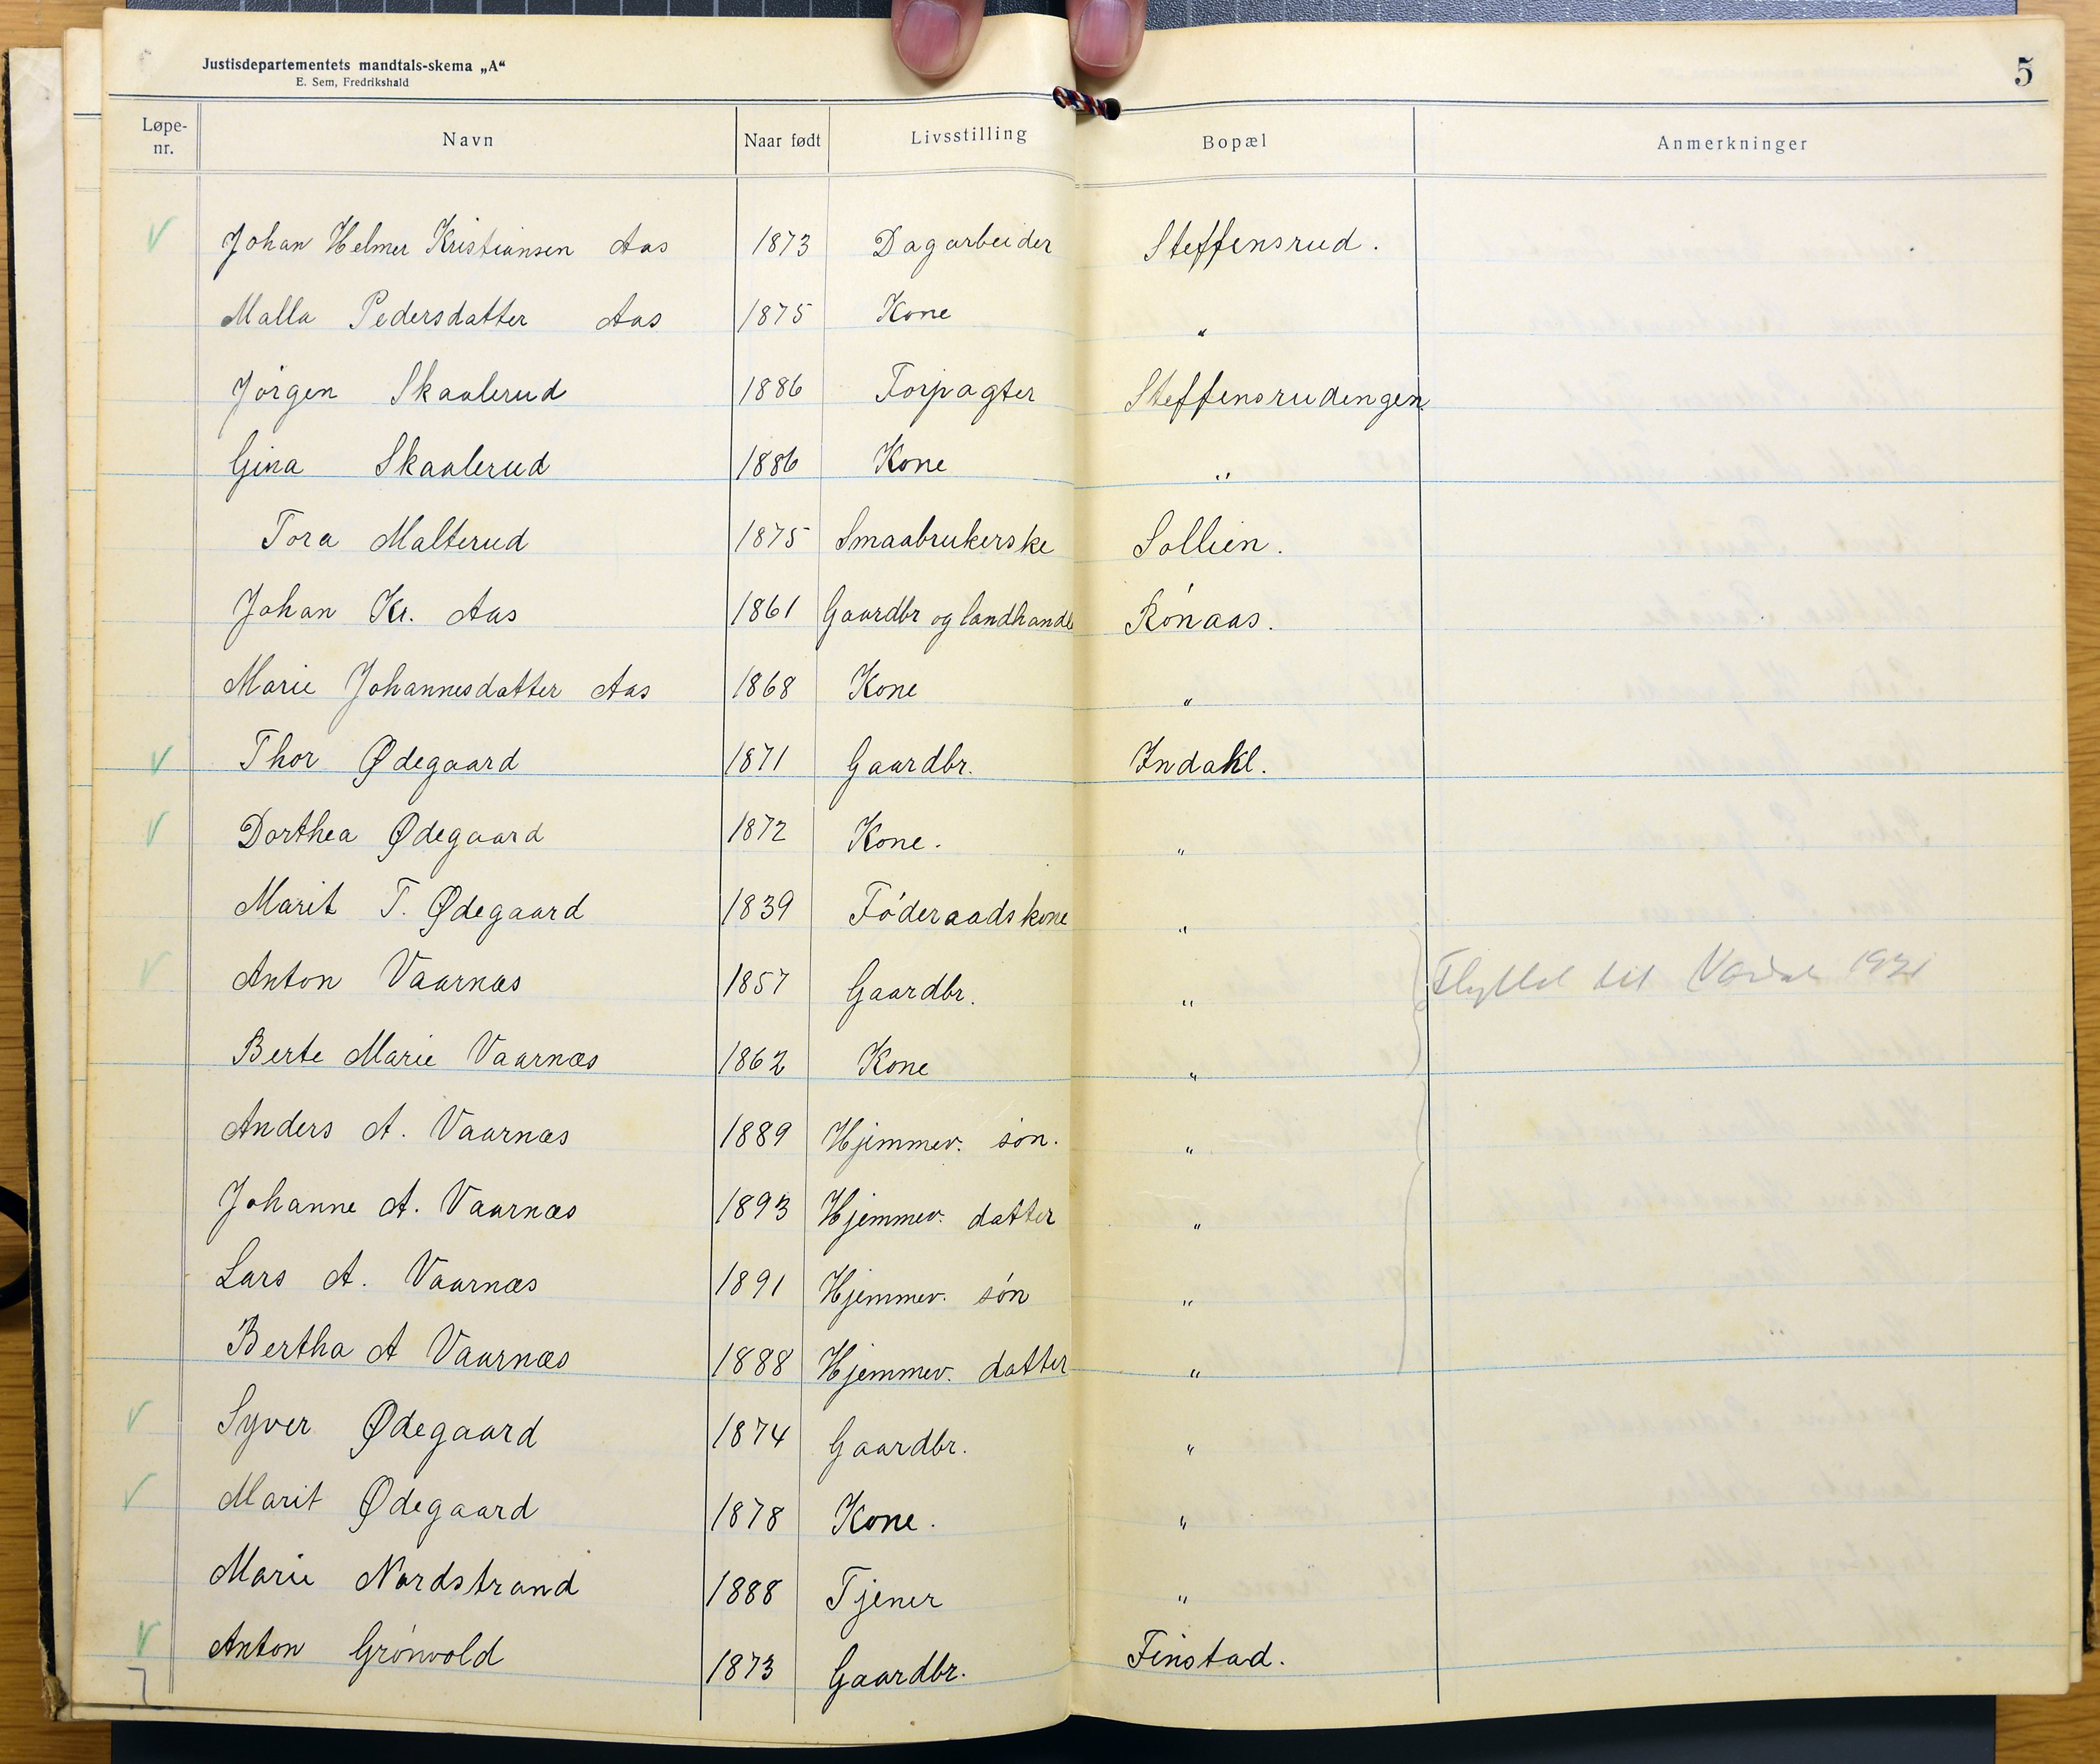 Justisdepartementets mandtals-skema „A“
E. Sem, Fredrikshald
5
Løpe-nr. Navn Naar født Livsstilling Bopæl Anmerkninger
Johan Helmer Kristiansen Aas 1873 Dagarbeider Steffensrud.
Malla Pedersdatter Aas 1875 Kone "
Jörgen Skaalerud 1886 Forpagter Steffensrudengen
Gina Skaalerud 1886 Kone "
Tora Malterud 1875 Smaabrukerske Sollien.
Johan Kr. Aas 1861 Gaardbr og landhandl Rönaas.
Marie Johannesdatter Aas 1868 Kone "
Thor Ødegaard 1871 Gaardbr. Indakl.
Dorthea Ødegaard 1872 Kone. "
Marit T. Ødegaard 1839 Föderaadskone "
Anton Vaarnæs 1857 Gaardbr. " Flyttet til 1921
Berte Marie Vaarnæs 1862 Kone "
Anders A. Vaarnæs 1889 Hjemmev. sön. "
Johanne A. Vaarnæs 1893 Hjemmev. datter "
Lars A. Vaarnæs 1891 Hjemmev. sön "
Bertha A Vaarnæs 1888 Hjemmev. datter "
Syver Ødegaard 1874 Gaardbr. "
Marit Ødegaard 1878 Kone. "
Marie Nordstrand 1888 Tjener "
Anton Grönvold 1873 Gaardbr. Finstad.
7